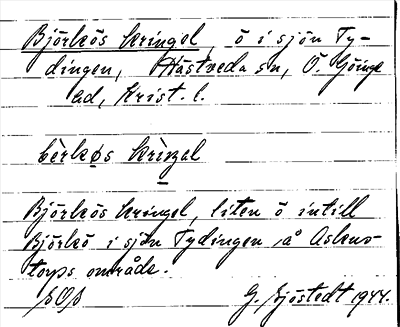 Björkös kringel, ö i sjön Ty-
dingen, Hästveda sn, Ö. Göinge
hd, Krist. l.
bèrkøs krìngəl
Björkös kringel, liten ö intill
Björkö i sjön Tydingen å Askens-
torps område.
G. Sjöstedt 1944.